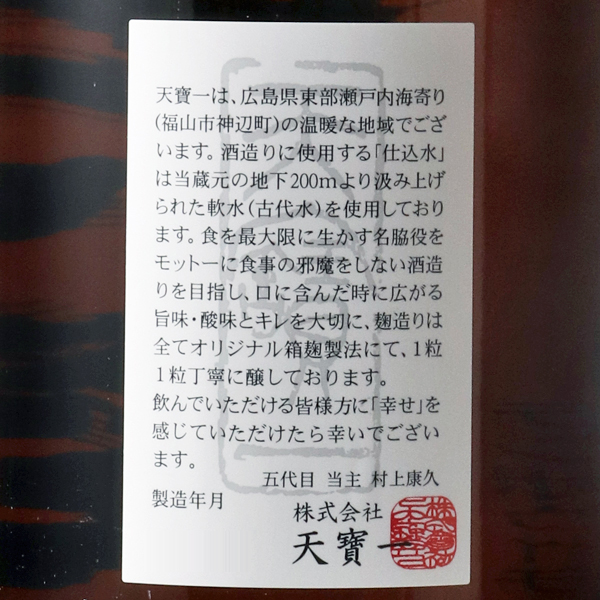 天寶一は、広島県東部瀬戸内海寄り
(福山市神辺町)の温暖な地域でござ
います。酒造りに使用する「仕込水」
は当蔵元の地下200mより汲み上げ
られた軟水(古代水)を使用しており
ます。食を最大限に生かす名脇役を
モットーに食事の邪魔をしない酒造
りを目指し、口に含んだ時に広がる
旨味・酸味とキレを大切に、麹造りは
全てオリジナル箱麹製法にて、1粒
1粒丁寧に醸しております。
飲んでいただける皆様方に「幸せ」を
感じていただけたら幸いでござい
ます。
五代目 当主 村上康久
製造年月
株式会社
天寶一